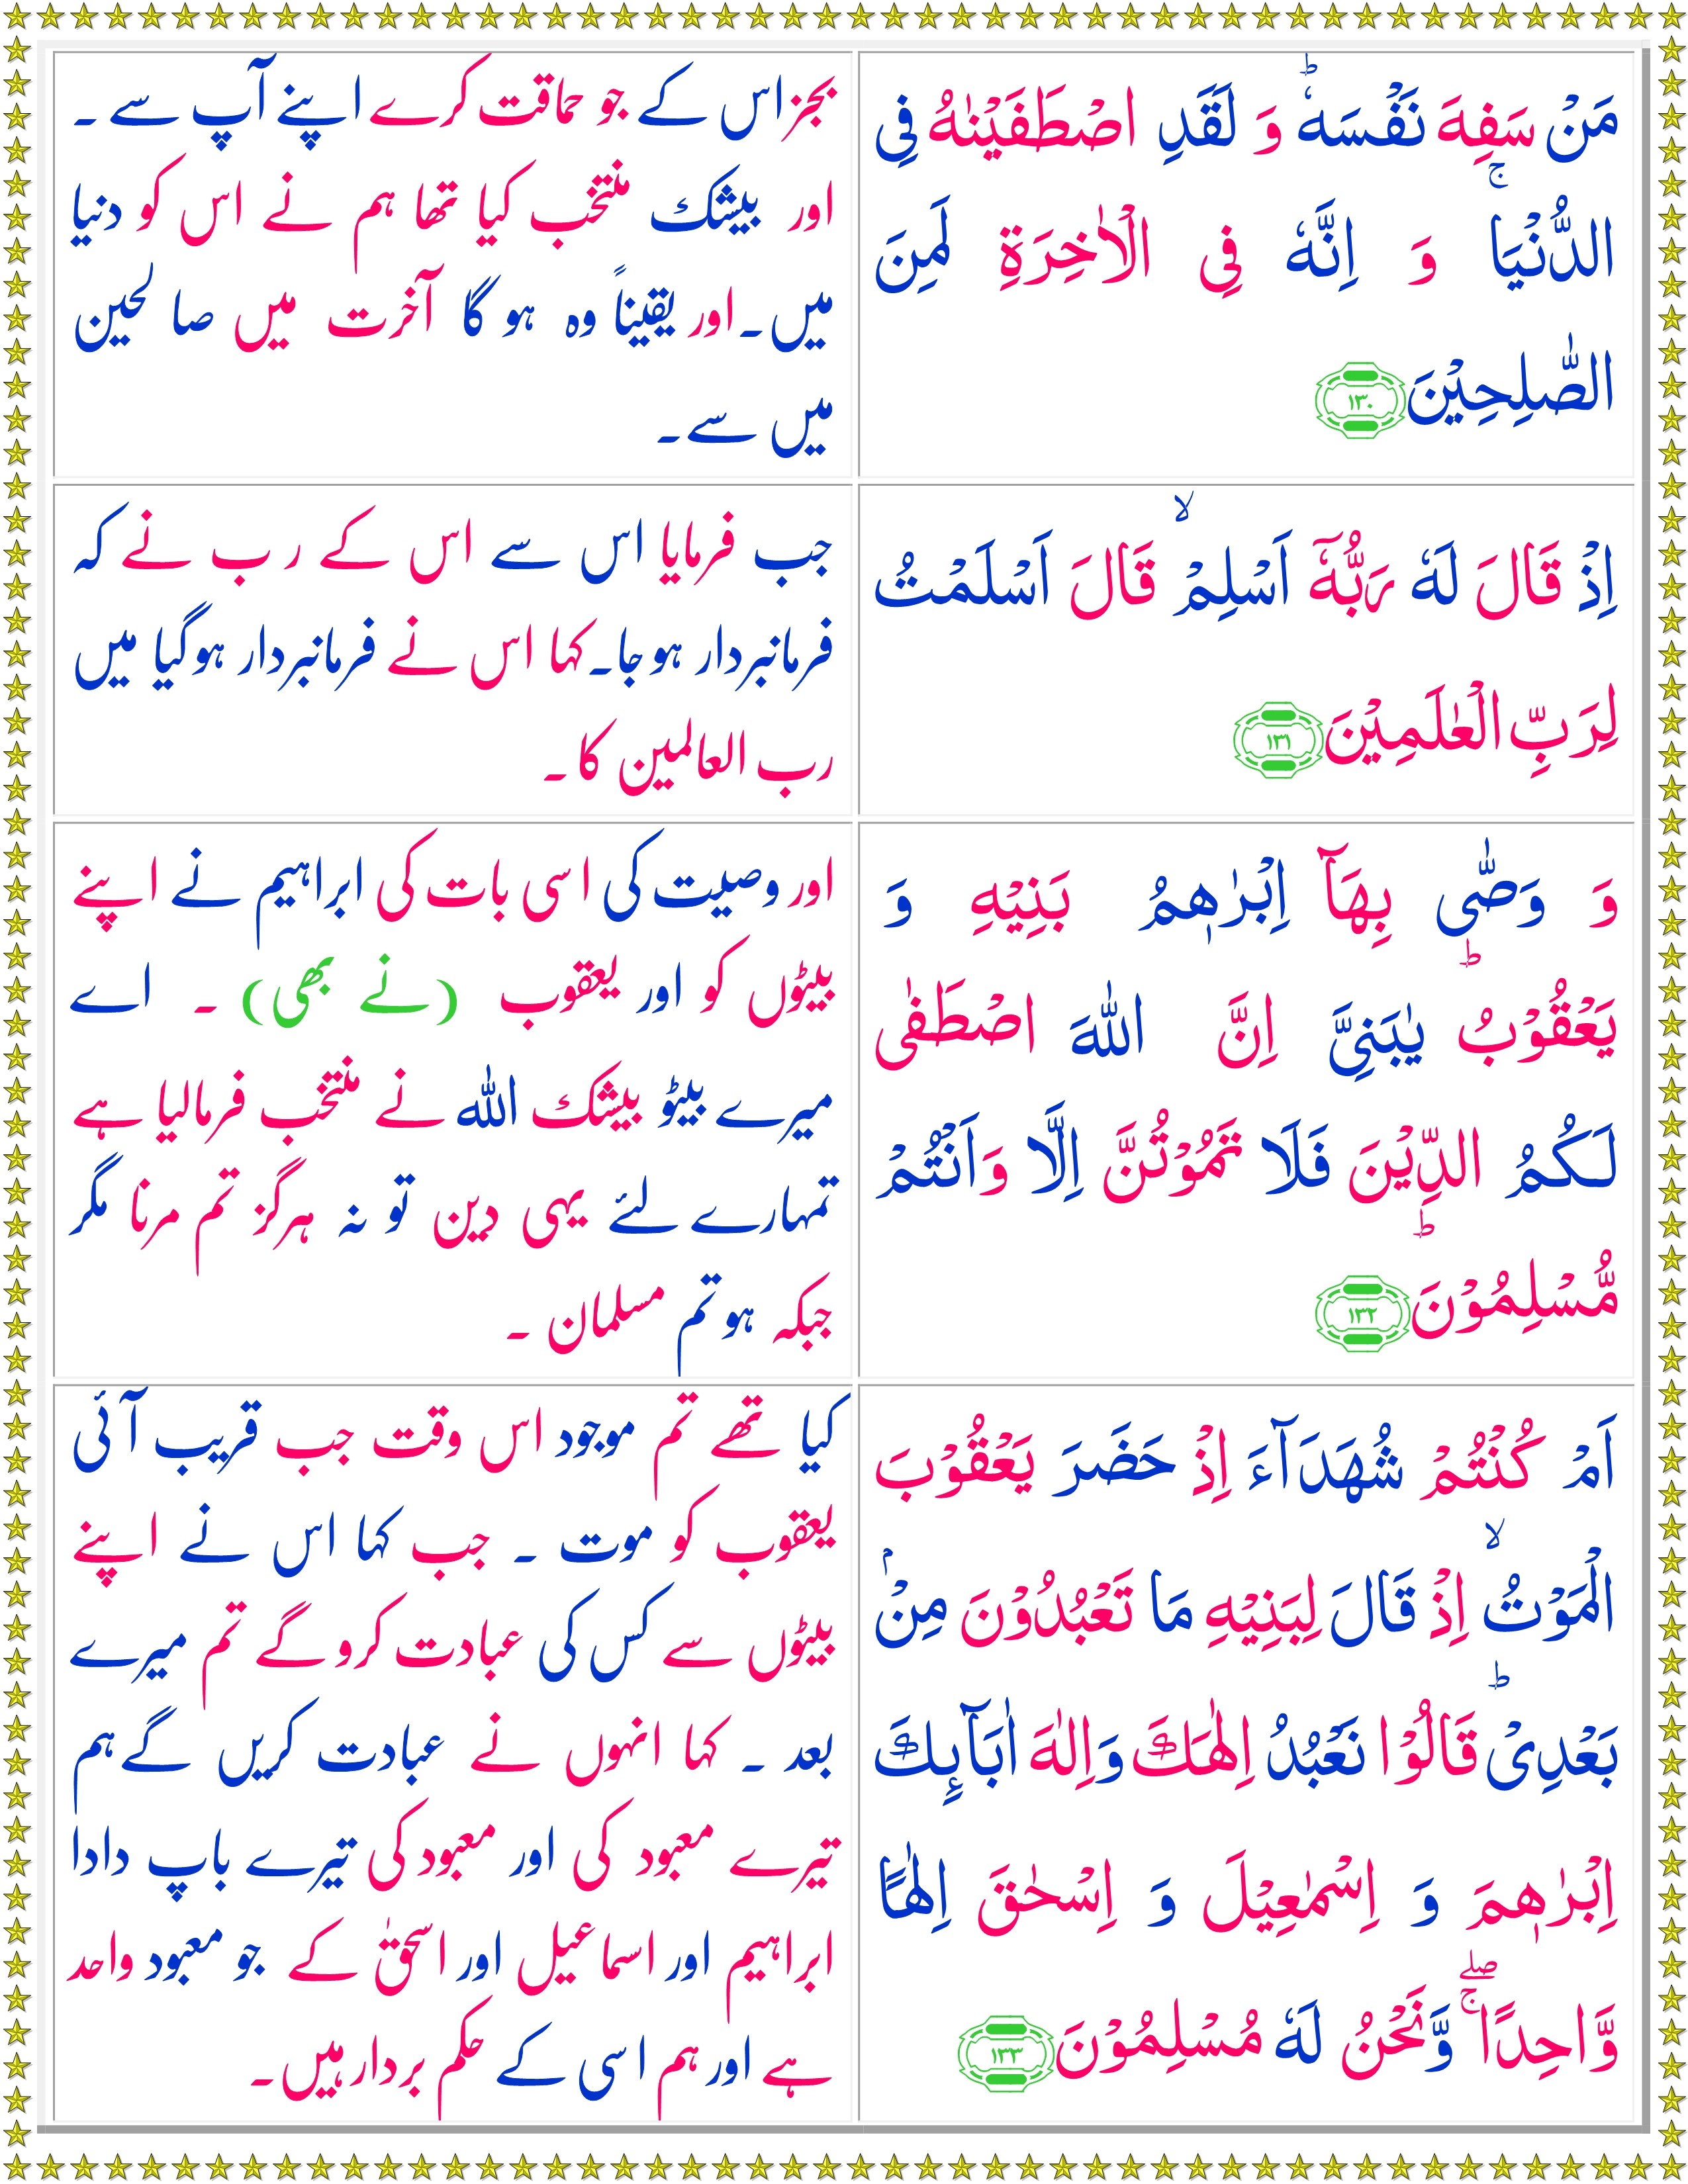 مَنْ سَفِهَ نَفْسَهٗ ؕ وَ لَقَدِ اصْطَفَيْنٰهُ فِی
الدُّنْيَا ۚ وَ اِنَّهٗ فِی الْاٰخِرَةِ لَمِنَ
الصّٰلِحِيْنَ ۱۳۰
بجز اس کے جو حماقت کرے اپنے آپ سے ۔
اور بیشک منتخب کیا تھا ہم نے اس کو دنیا
میں ۔ اور یقیناً وہ ہو گا آخرت میں صا لحین
میں سے ۔
اِذْ قَالَ لَهٗ رَبُّهٗۤ اَسْلِمْ ۙ قَالَ اَسْلَمْتُ
لِرَبِّ الْعٰلَمِيْنَ ۱۳۱
جب فرمایا اس سے اس کے رب نے کہ
فرمانبردار ہوجا ۔ کہا اس نے فرمانبردار ہوگیا میں
رب العالمین کا ۔
وَ وَصّٰی بِهَاۤ اِبْرٰهٖمُ بَنِيْهِ وَ
يَعْقُوْبُ ؕ يٰبَنِیَّ اِنَّ اللّٰهَ اصْطَفٰی
لَكُمُ الدِّيْنَ فَلَا تَمُوْتُنَّ اِلَّا وَاَنْتُمْ
مُّسْلِمُوْنَ ؕ ۱۳۲
اور وصیت کی اسی بات کی ابراہیم نے اپنے
بیٹوں کو اور یعقوب (نے بھی) ۔ اے
میرے بیٹو بیشک اللہ نے منتخب فرمالیا ہے
تمہارے لئے یہی دین تو نہ ہرگز تم مرنا مگر
جبکہ ہو تم مسلمان ۔
اَمْ كُنْتُمْ شُهَدَآءَ اِذْ حَضَرَ يَعْقُوْبَ
الْمَوْتُ ۙ اِذْ قَالَ لِبَنِيْهِ مَا تَعْبُدُوْنَ مِنْۢ
بَعْدِیْ ؕ قَالُوْا نَعْبُدُ اِلٰهَكَ وَاِلٰهَ اٰبَآٮِٕكَ
اِبْرٰهٖمَ وَ اِسْمٰعِيْلَ وَ اِسْحٰقَ اِلٰهًا
وَّاحِدًا ۖۚ وَّنَحْنُ لَهٗ مُسْلِمُوْنَ ۱۳۳
کیا تھے تم موجود اس وقت جب قریب آئی
یعقوب کو موت ۔ جب کہا اس نے اپنے
بیٹوں سے کس کی عبادت کرو گے تم میرے
بعد ۔ کہا انہوں نے عبادت کریں گے ہم
تیرے معبود کی اور معبود کی تیرے باپ دادا
ابراہیم اور اسماعیل اور اسحٰق کے جو معبود واحد
ہے اور ہم اسی کے حکم بردار ہیں ۔